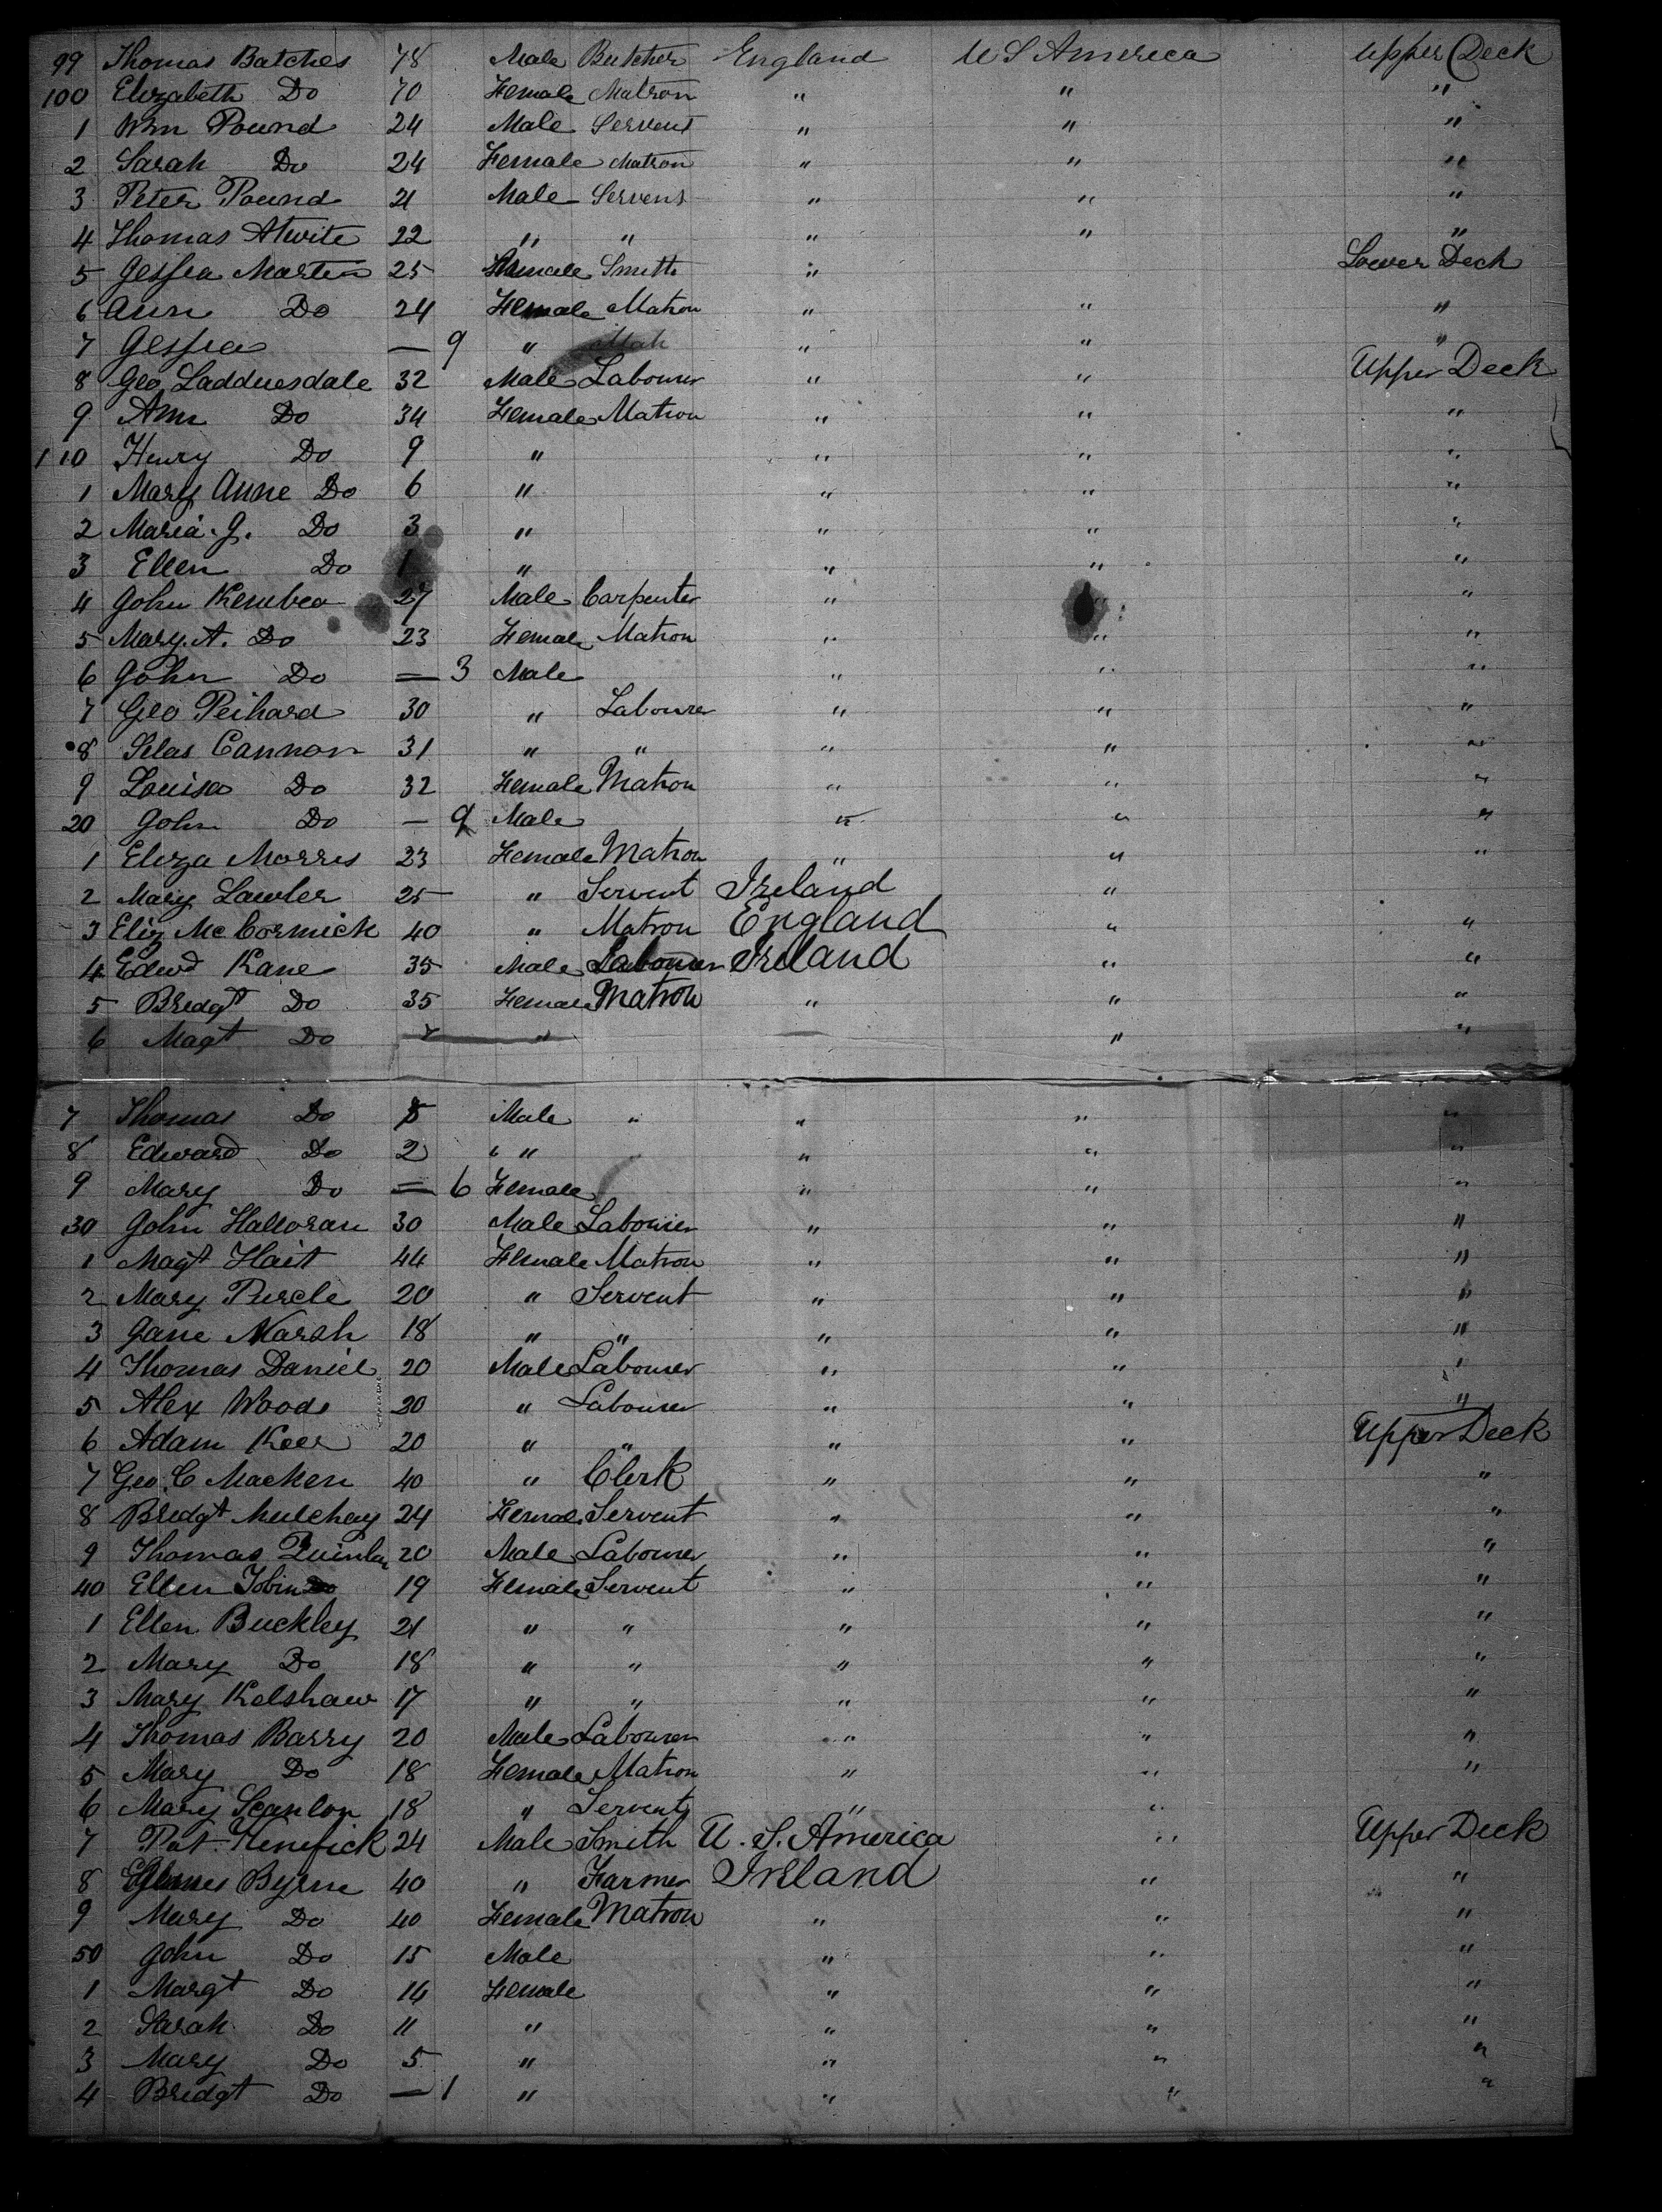 99 Thomas Batches 78 Male Butcher England U S America Upper Deck
100 Elizabeth Do 70 Female Matron " " "
1 Wm Pound 24 Male Servent " " "
2 Sarah Do 24 Female Matron " " "
3 Peter Pound 21 Male Servent " " "
4 Thomas Atwite 22 " " " " "
5 Martin 25 Smith " Lower Deck
6 Ann Do 24 Female Matron " " "
7 — 9 " " " "
8 Geo Ladduesdale 32 Male Labourer " " Upper Deck
9 Ann Do 34 Female Matron " " "
110 Henry Do 9 " " " "
1 Mary Anne Do 6 " " " "
2 Maria. J. Do 3 " " " "
3 Ellen Do 1 " " " "
4 John 27 Male Carpenter " " "
5 Mary. A. Do 23 Female Matron " " "
6 John Do — 3 Male " " "
7 Geo Peihard 30 " Labourer " " "
8 Silas Cannon 31 " " " " "
9 Louisa Do 32 Female Matron " " "
20 John Do — 9 Male " " "
1 Eliza Morris 23 Female Matron " " "
2 Mary Lawler 25 " Servent Ireland "
3 Eliz McCormick 40 " Matron England " "
4 Edwd Kane 35 Male Labourer Ireland " "
5 Bredgt Do 35 Female Matron " " "
6 Magt Do " " "
7 Thomas Do Male " " " "
8 Edward Do 2 " " " " "
9 Mary Do — 6 Female " " "
30 John Halloran 30 Male Labourer " " "
1 Magt Hait 44 Female Matron " " "
2 Mary Purcle 20 " Servent " " "
3 Jane Marsh 18 " " " " "
4 Thomas Daniel 20 Male Labourer " " "
5 Alex Woods 20 " Labourer " " "
6 Adam Keer 20 " " " " Upper Deck
7 Geo. C Macken 40 " Clerk " " "
8 Bredgt Mulchay 24 Female Servent " " "
9 Thomas Quinlan 20 Male Labourer " " "
40 Ellen Tobin 19 Female Servent " " "
1 Ellen Buckley 21 " " " " "
2 Mary Do 18 " " " " "
3 Mary Kelshaw 17 " " " " "
4 Thomas Barry 20 Male Labourer " " "
5 Mary Do 18 Female Matron " " "
6 Mary Scanlon 18 " Servent " "
7 Pat. Kenefick 24 Male Smith U. S. America " Upper Deck
8 Byrne 40 " Farmer Ireland " "
9 Mary Do 40 Female Matron " " "
50 John Do 15 Male " " "
1 Margt Do 14 Female " " "
2 Sarah Do 11 " " " "
3 Mary Do 5 " " " "
4 Bredgt Do — 1 " " " "